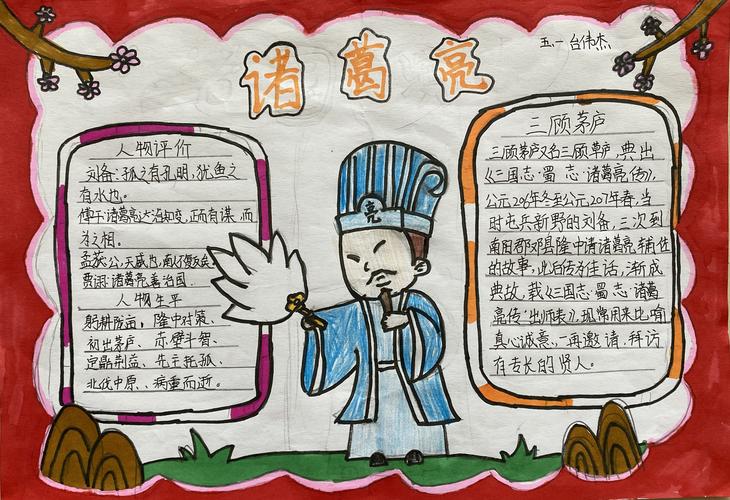 诸葛亮
五、一 台伟杰
人物评价
刘备:孤之有孔明,犹鱼之
有水也。
傅干:诸葛亮达治知变,正而有谋,而
为之相。
孟获:公,天威也,南人不复反矣
贾诩:诸葛亮善治国
人物生平
躬耕陇亩、隆中对策、
初出茅庐、赤壁斗智、
定鼎荆益、先主托孤、
北伐中原、病重而逝。
亮
三顾茅庐
三顾茅庐又名三顾草庐,典出
《三国志·蜀志·诸葛亮传》,
公元206年冬至公元207年春,当
时屯兵新野的刘备,三次到
南阳郡邓县隆中请诸葛亮辅佐
的故事,此后传为佳话,渐成
典故,载《三国志·蜀志·诸葛
亮传·出师表》,现常用来比喻
真心诚意,一再邀请,拜访
有专长的贤人。